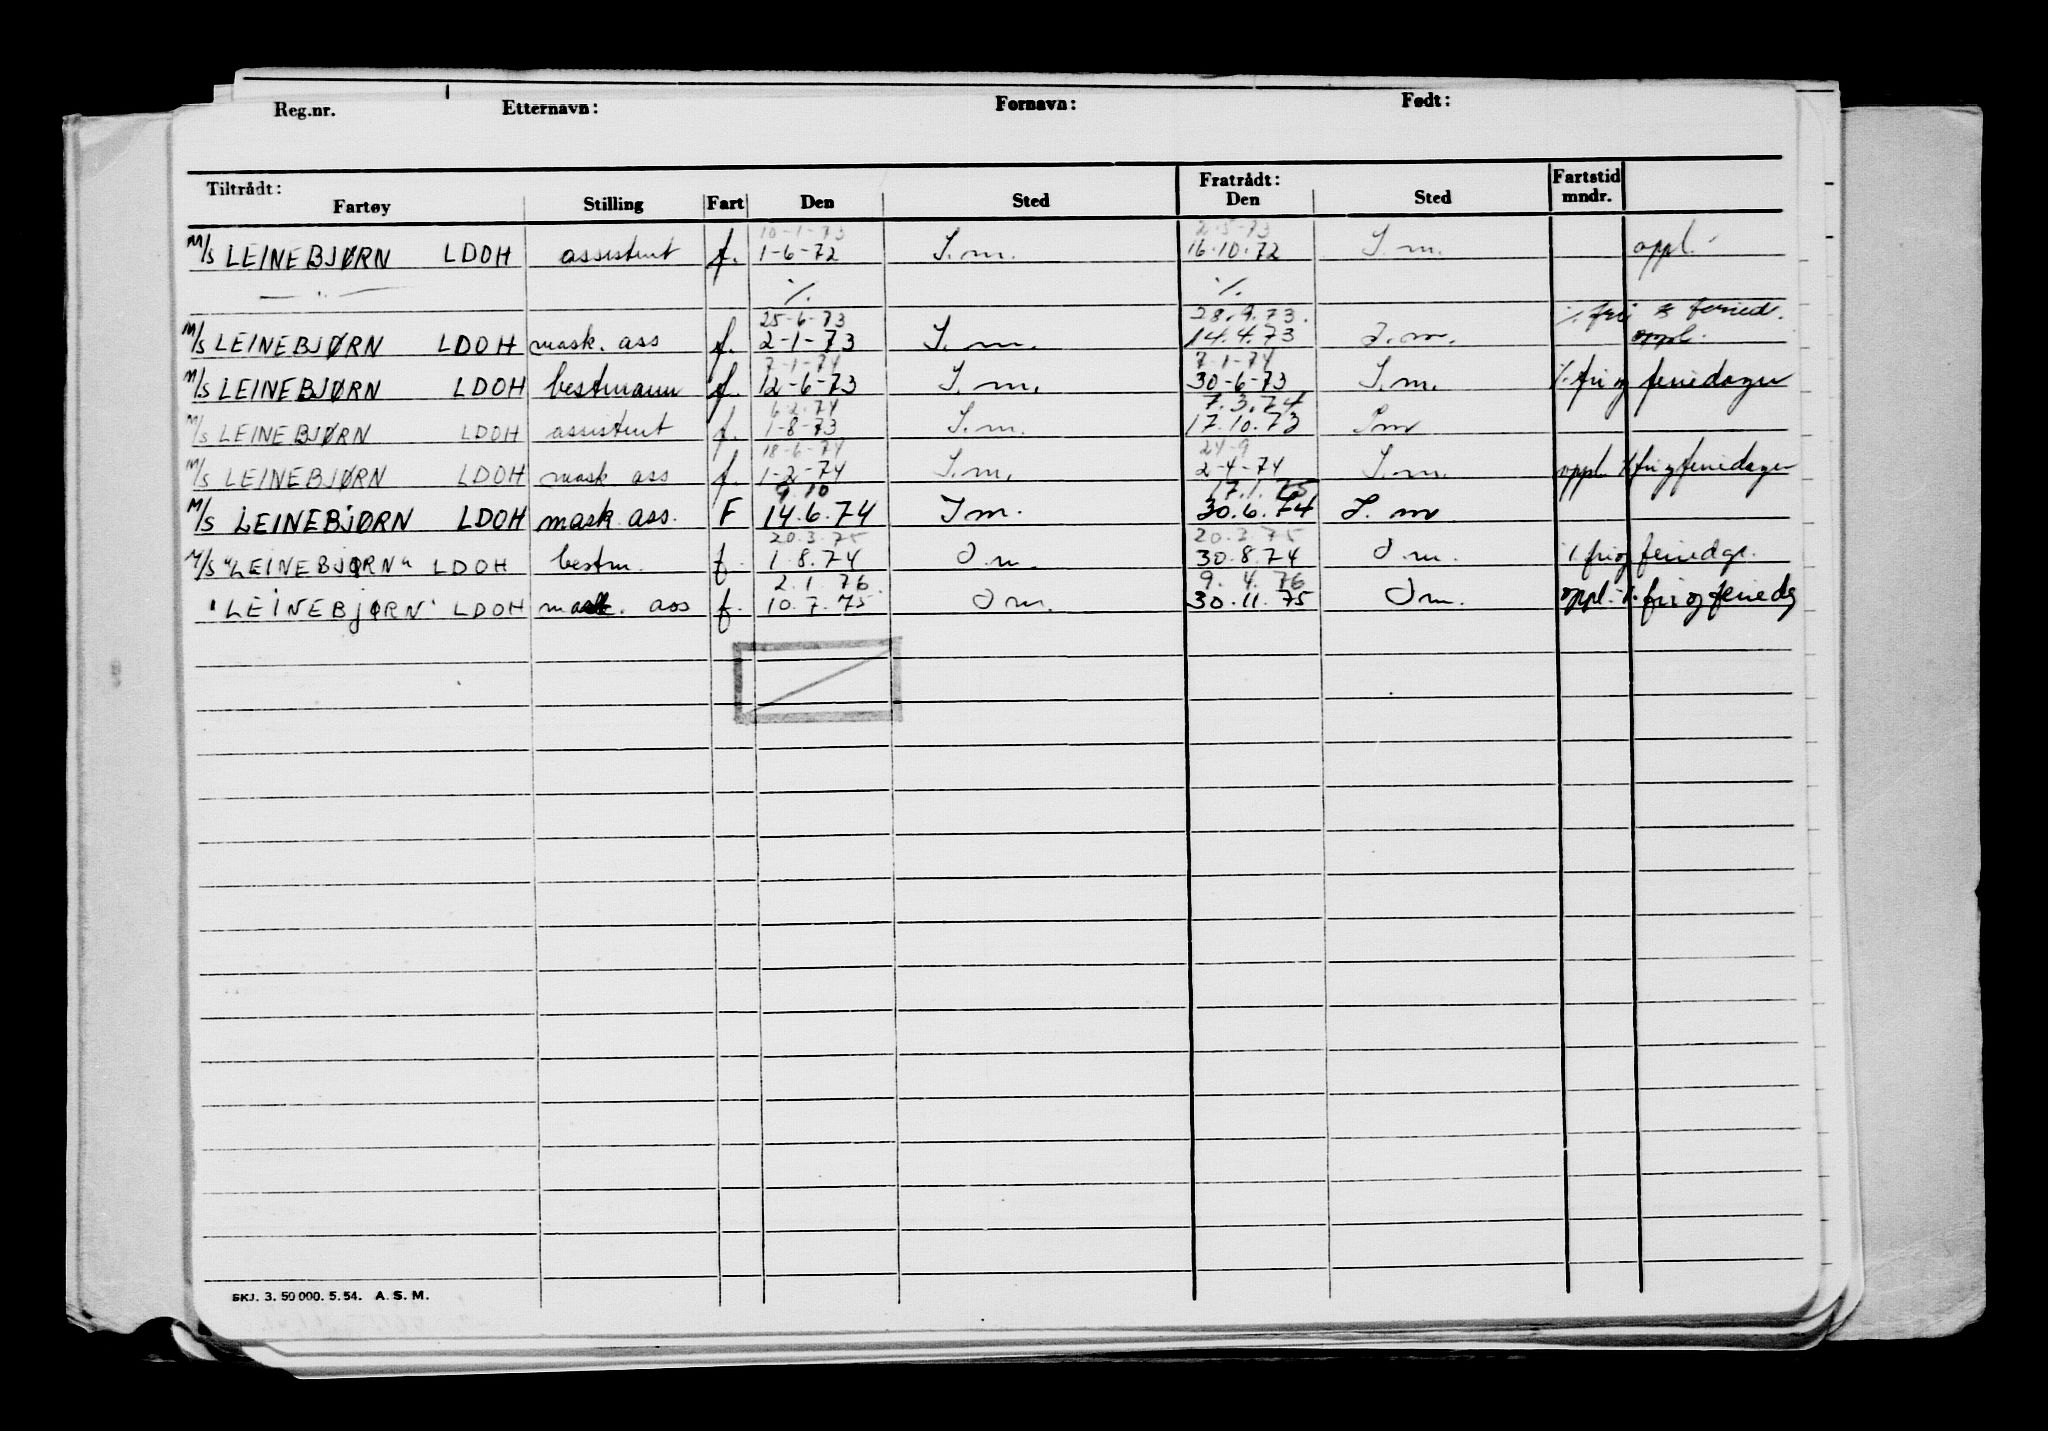 Reg.nr. Etternavn: Fornavn: Født:
Tiltrådt: Fratrådt: Fartstid
Fartøy Stilling Fart Den Sted Den Sted mndr.
10-1-73 2-5-73
M/S LEINEBJØRN LDOH assistent f. 1-6-72 S.m. 16.10.72 S.m. oppl.
— " — ./. ./.
25-6-73 28.9.73. ./. fri & feried.
M/S LEINEBJØRN LDOH mask. ass f. 2-1-73 S.m. 14.4.73 S.m. oppl.
7-1-74 7-1-74
M/S LEINEBJØRN LDOH bestmann f. 12-6-73 S.m. 30-6-73 S.m. ./. fri og feriedager
6.2.74 7.3.74
M/S LEINEBJØRN LDOH assistent f. 1-8-73 S.m. 17.10.73 Sm
18-6-74 24-9
M/S LEINEBJØRN LDOH mask ass f. 1-2-74 S.m. 2-4-74 S.m. oppl ./. fri og feriedager
9.10 17.1.75
M/S LEINEBJØRN LDOH mask ass. F 14.6.74 Sm. 30.6.74 S.m
20.3.75 20.3.75
M/S "LEINEBJØRN" LDOH bestm. f. 1.8.74 S.m. 30.8.74 S.m. ./. fri og feriedgr.
2.1.76. 9.4.76
"LEINEBJØRN" LDOH mask. ass f. 10.7.75 Sm. 30.11.75 Sm. oppl. ./. fri og feriedg
SKJ. 3. 50 000. 5. 54. A. S. M.